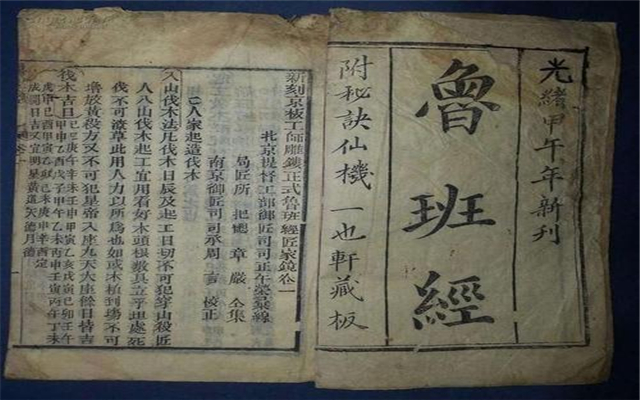 光緒甲午年新刊
魯班經
附秘訣仙機 一也軒藏板
新刻京板工師雕鏤正式魯班經匠家鏡卷一
北京提督工部御匠司司正午榮彙編
局匠所把總 章嚴 仝集
南京御匠司司承周言 校正
人家起造伐木
入山伐木法凡伐木日辰及起工日切不可犯穿山殺匠
人入山伐木起工宜用看好木頭根數具立平坦處
伐不可潦草此用人力以所為也如或木植到塲不可
堆放黃殺方又不可犯皇帝八座九天大座餘日皆吉
伐木吉日
成開日吉又宜明星黃道天德月德